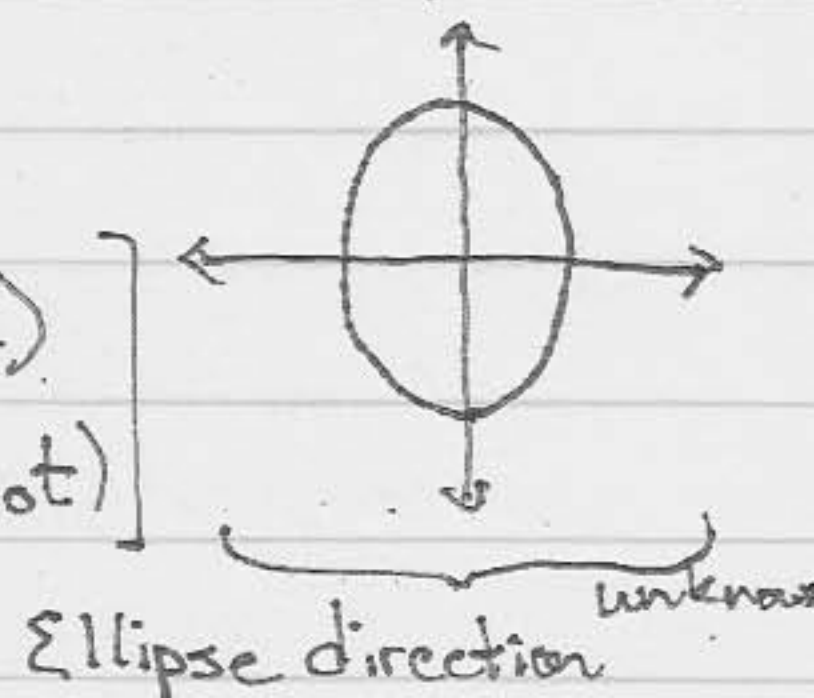 )
ot)
unknow
Ellipse direction